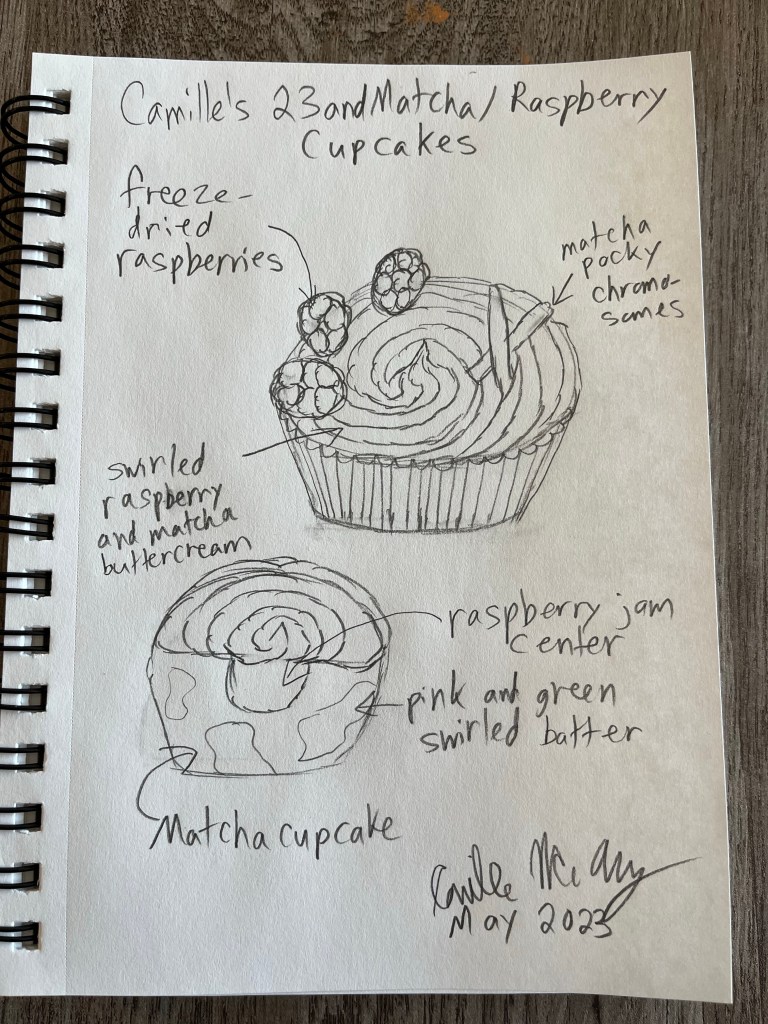 Camille's 23andMatcha/Raspberry
Cupcakes
freeze-
dried
raspberries
matcha
pocky
chromo-
somes
swirled
raspberry
and matcha
buttercream
raspberry jam
center
pink and green
swirled batter
Matcha cupcake
Camille
May 2023